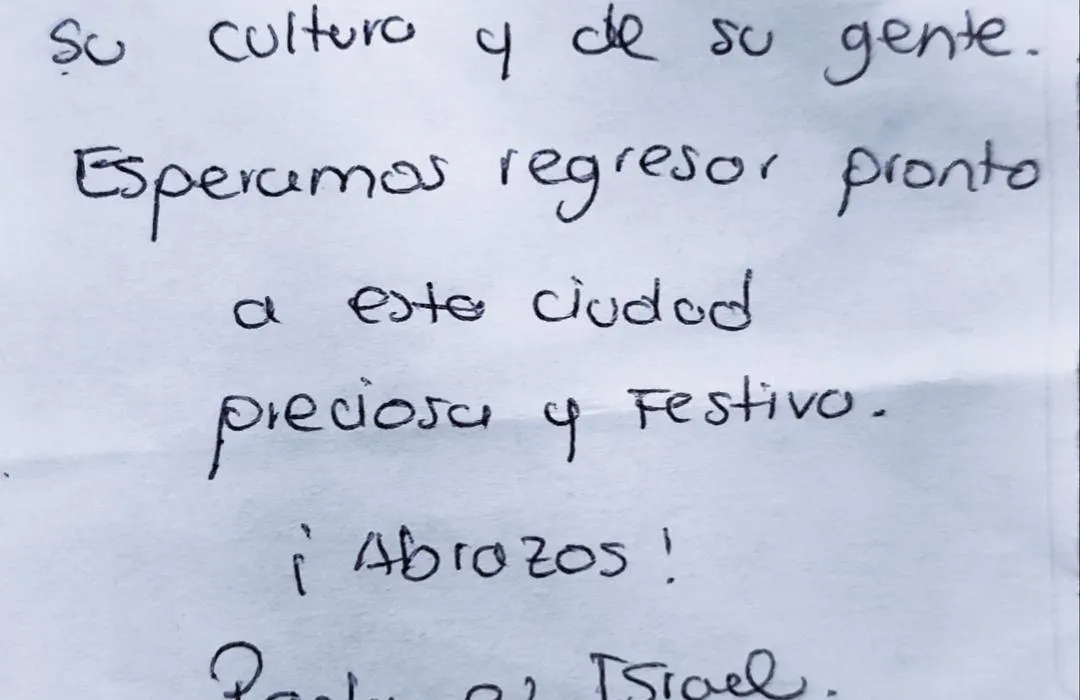 su cultura y de su gente.
Esperamos regresar pronto
a esta ciudad
preciosa y Festiva.
¡Abrazos!
Israel.